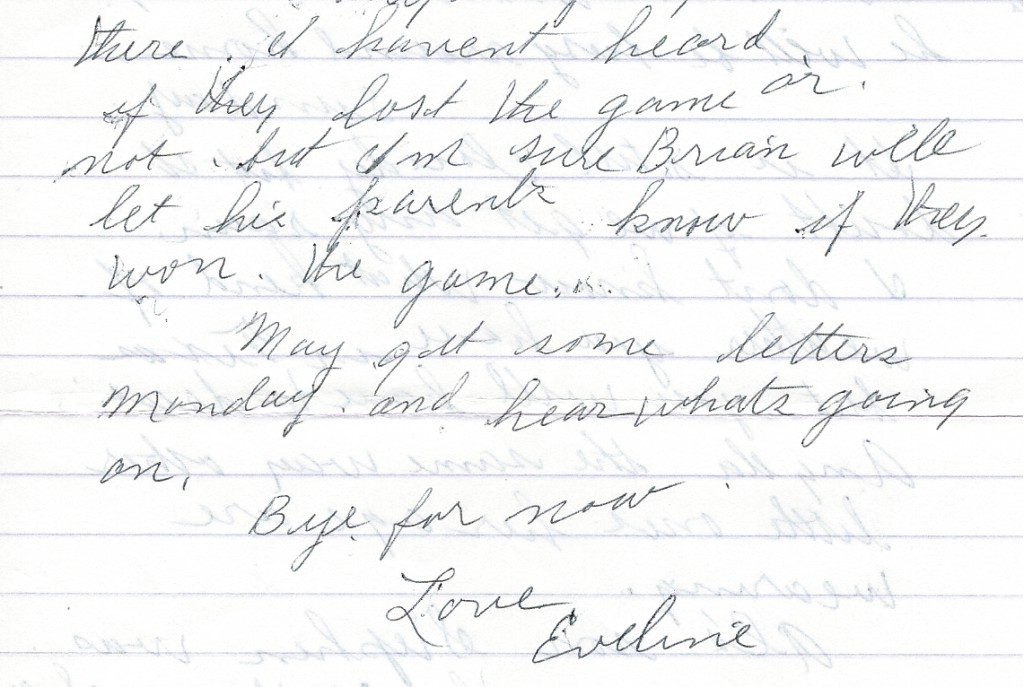 there. I havent heard
if they lost the game or.
not. but I'm sure Brian will
let his parents know if they.
won. the game...
May get some letters
Monday. and hear whats going
on.
Bye for now.
Love,
Eveline